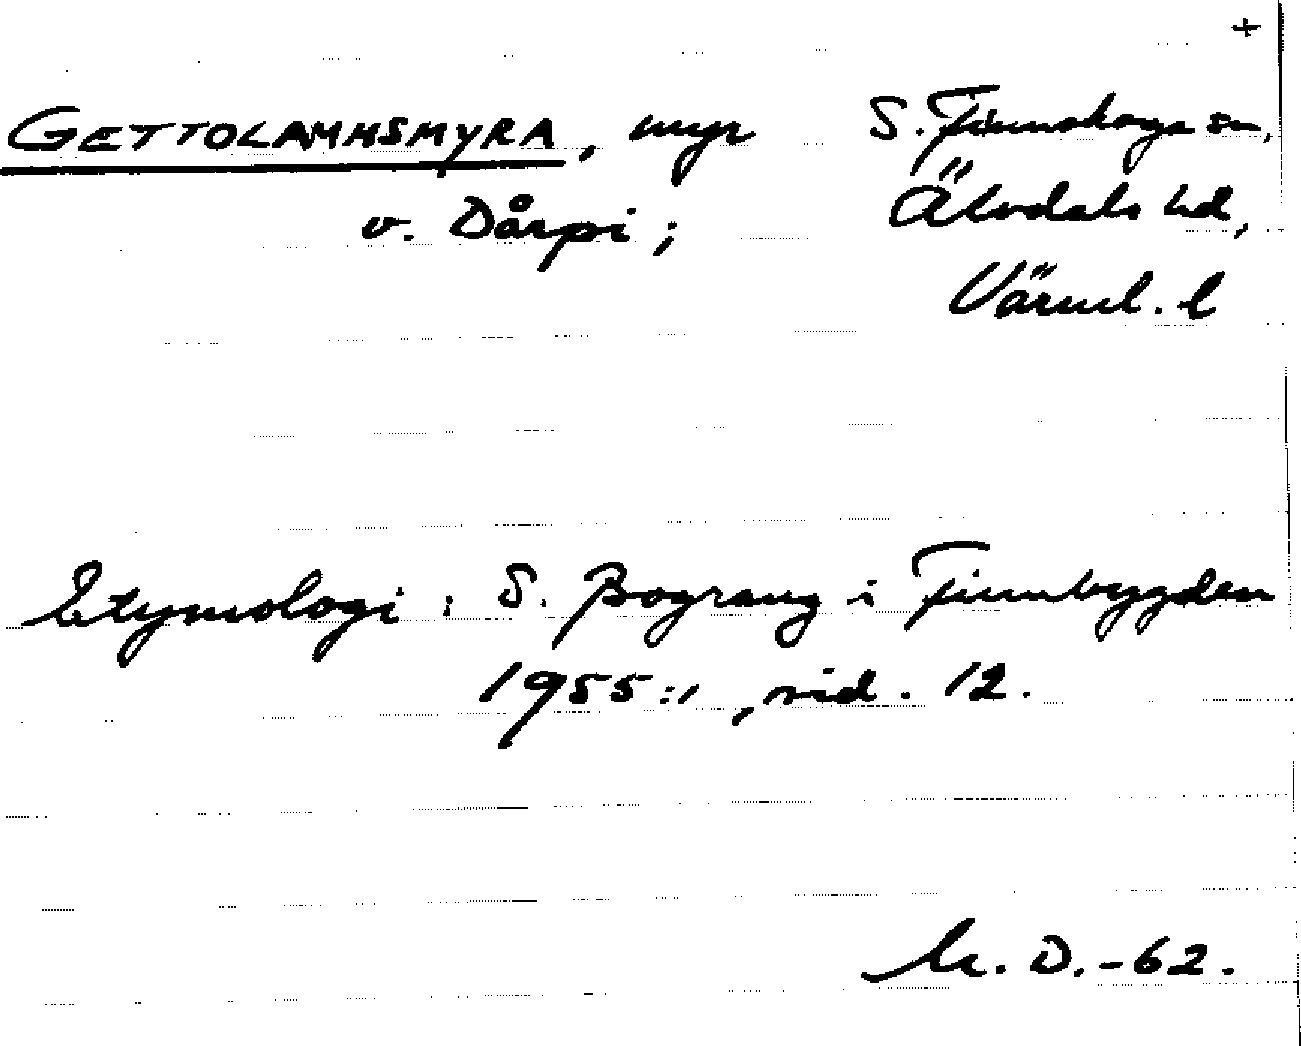 +
GETTOLAMMSMYRA, myr S. Finnskoga sn,
v. Dårpi; Älvdals hd,
Värml. l
Etymologi: S. Bograng i Finnbygden
1955:1, sid. 12.
D.-62.